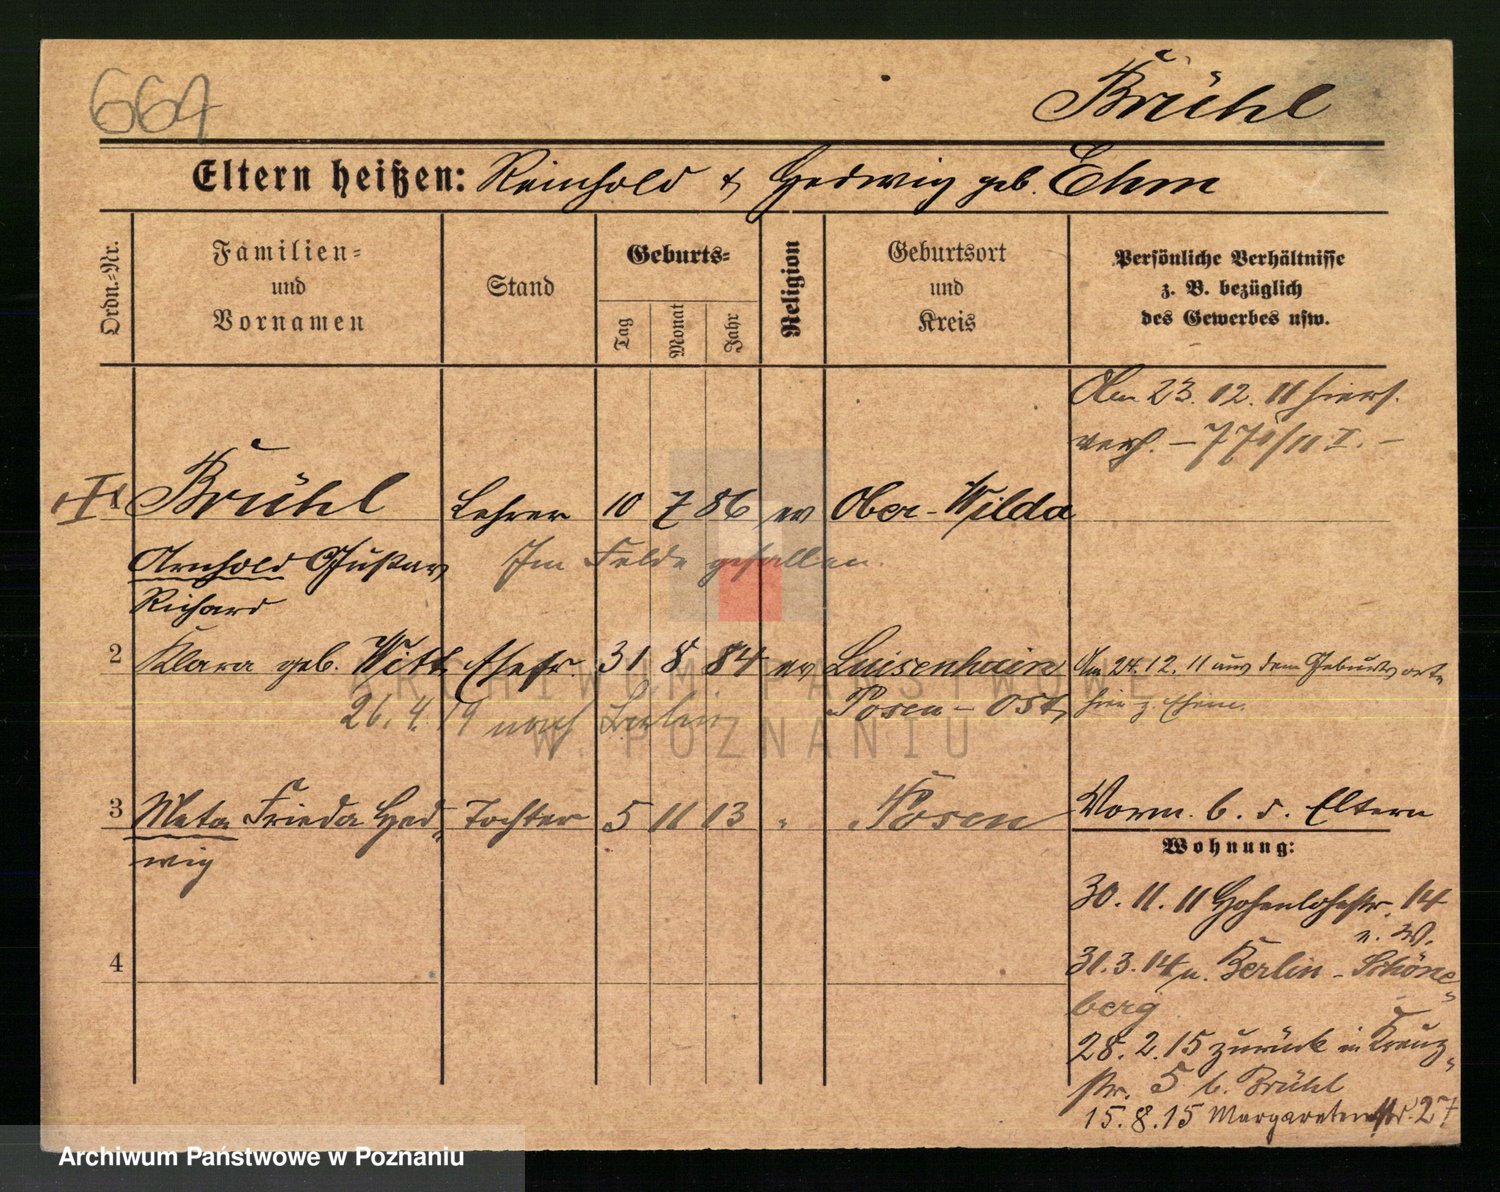 664
Brühl
Eltern heißen: Reinhold & Hedwig geb. Ehm
Ordn.-Nr.
Familien-
und
Vornamen
Stand
Geburts-
Tag
Monat
Jahr
Religion
Geburtsort
und
Kreis
Persönliche Verhältnisse
z. B. bezüglich
des Gewerbes usw.
Am 23. 12. 11 hiers.
verh. –
1 Brühl Lehrer 10 7 86 ev Ober-Wilda
Arnhold Gustav Im Felde gefallen.
Richard
2 Klara geb. Witt. Ehefr. 31 8 84 ev Luisenhain Am 24. 12. 11 aus dem Geburtsorte
26. 4. 19 nach Berlin Posen-Ost, hier z. Ehem.
3 Meta Frieda Hed- Tochter 5 11 13 " Posen
wig
4
Vorm. b. d. Eltern
Wohnung:
30. 11. 11 Hohenlohestr. 14
n. W.
31. 3. 14 n. Berlin-Schöne-
berg
28. 2. 15 zurück in Kreuz-
str. 5 b. Brühl
15. 8. 15 Margaretenstr. 27
ARCHIWUM PAŃSTWOWE
W POZNANIU
Archiwum Państwowe w Poznaniu